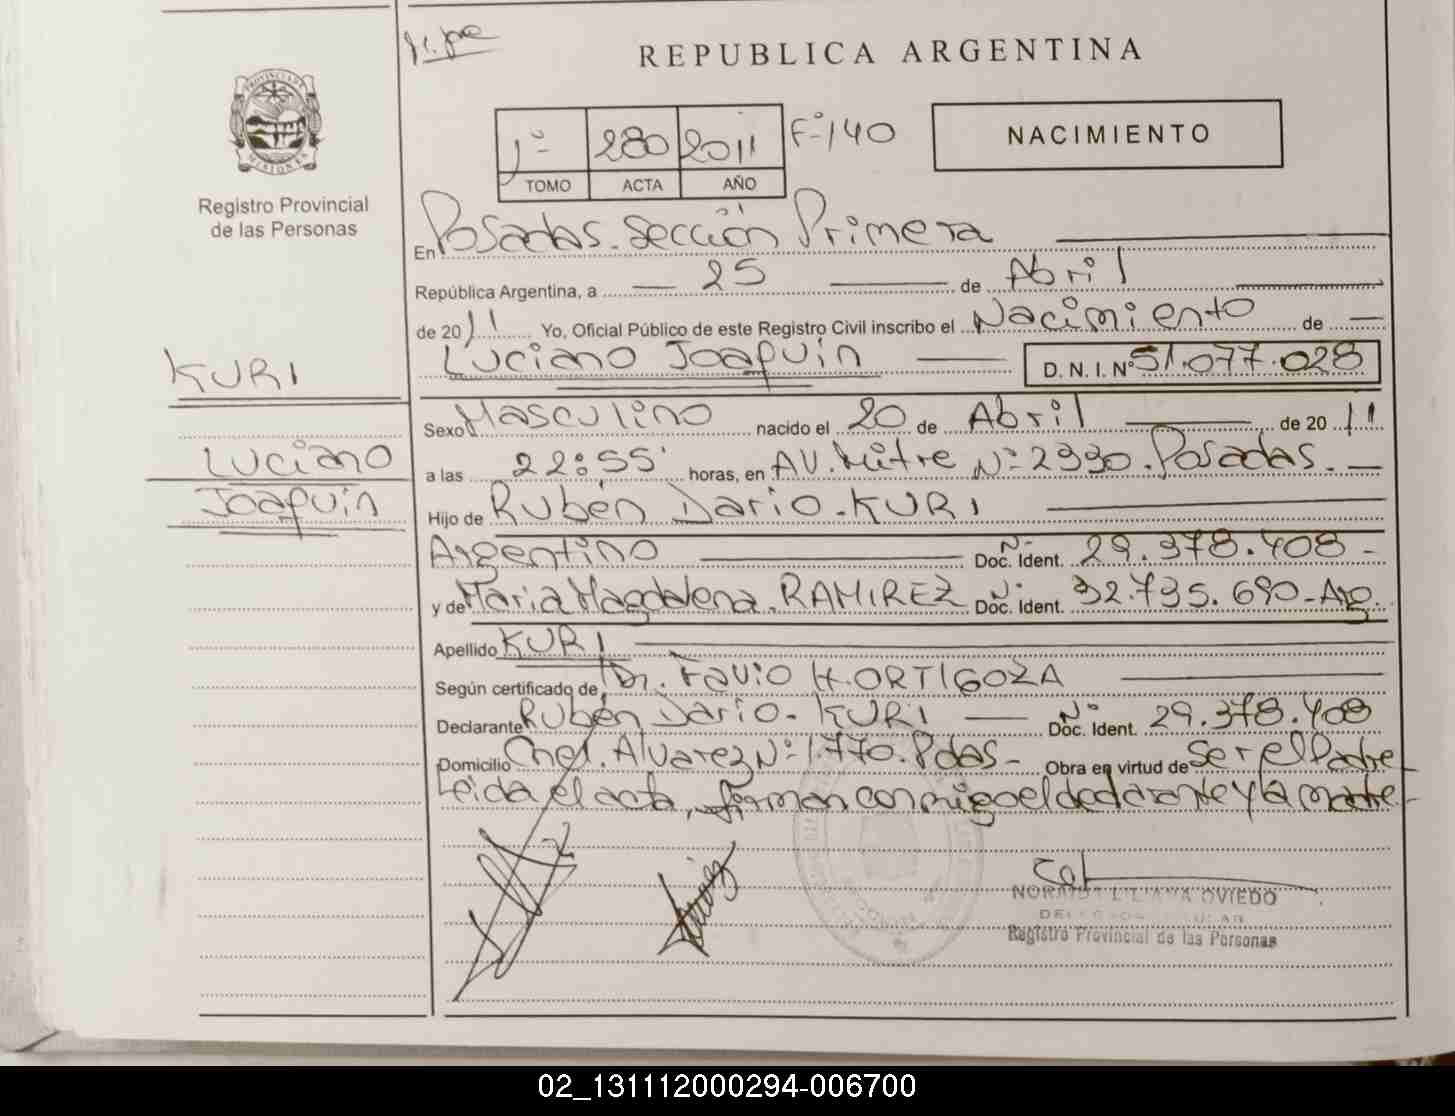 REPUBLICA ARGENTINA
PROVINCIA DE
MISIONES
Registro Provincial
de las Personas
1º 280 2011 Fº 140
TOMO ACTA AÑO
NACIMIENTO
En Posadas. Sección Primera
República Argentina, a 25 de Abril
de 2011 Yo, Oficial Público de este Registro Civil inscribo el Nacimiento de
Luciano Joaquín D. N. I. Nº 51.077.028
KURI
Luciano
Joaquín
Sexo Masculino nacido el 20 de Abril de 2011
a las 22:55' horas, en AV. Mitre Nº 2330. Posadas.
Hijo de Rubén Dario. KURI
Argentino Nº Doc. Ident. 29.378.408-
y de Maria Magdalena. RAMIREZ Nº Doc. Ident. 32.735.690-Arg.
Apellido KURI
Según certificado de Dr. Favio H. ORTIGOZA
Declarante Rubén Dario. KURI Nº Doc. Ident. 29.378.408
Domicilio Cnel. Alvarez Nº 1.770. Pdas- Obra en virtud de Ser el Padre
Leida el acta, firman conmigo el declarante y la madre-
OVIEDO
Registro Provincial de las Personas
02_131112000294-006700